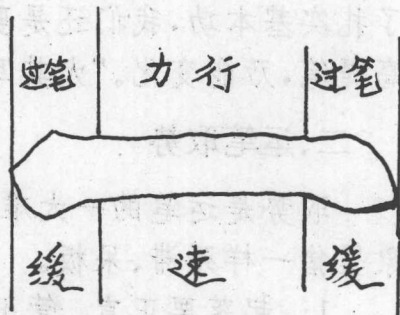 过笔 力行 过笔
缓 速 缓